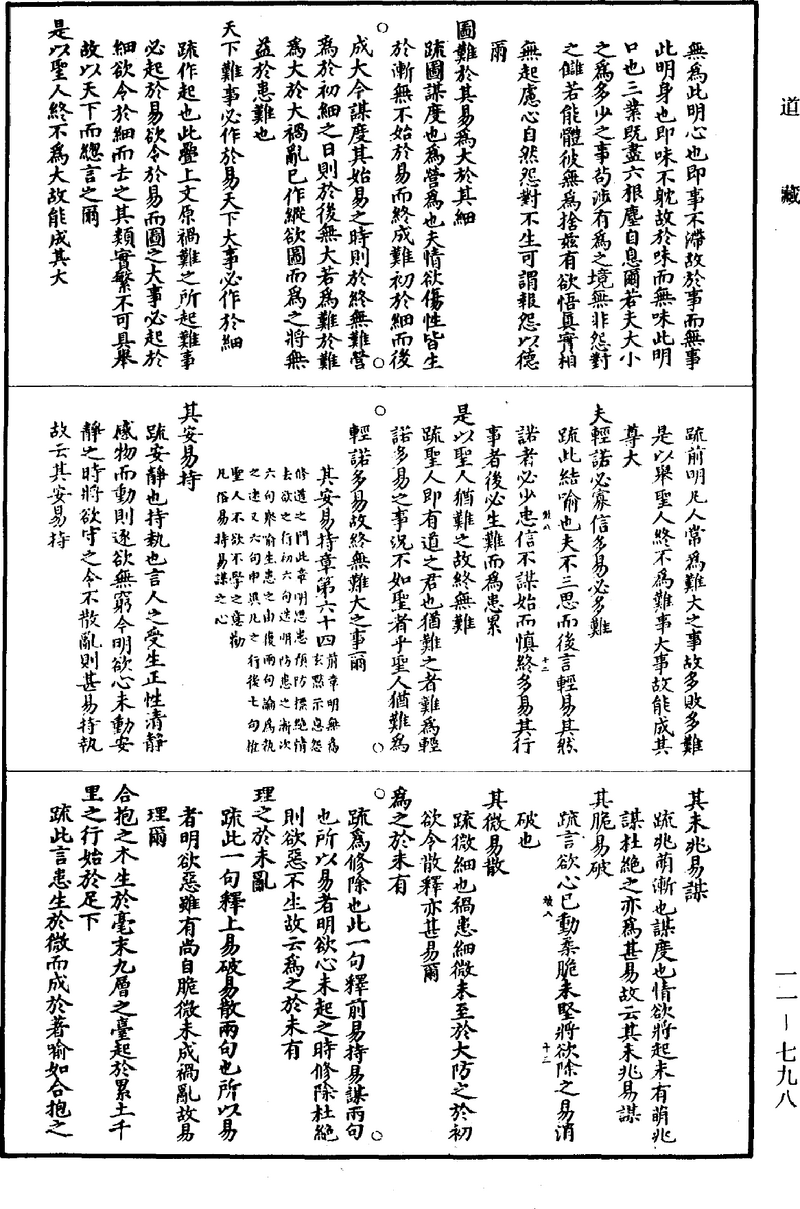 道藏
無爲此明心也即事不滯故於事而無事
此明身也即味不躭故於味而無味此明
口也三業既盡六根塵自息爾若夫大小
之爲多少之事苟涉有爲之境無非怨對
之讎若能體彼無爲捨兹有欲悟眞實相
無起慮心自然怨對不生可謂報怨以德
爾
圖難於其易爲大於其細
疏圖謀度也爲營爲也夫情欲傷性皆生
於漸無不始於易而終成難初於細而後
成大今謀度其始易之時則於終無難營
爲於初細之日則於後無大若爲難於難
爲大於大禍亂已作縱欲圖而爲之將無
益於患難也
天下難事必作於易天下大事必作於細
疏作起也此疊上文原禍難之所起難事
必起於易欲令於易而圖之大事必起於
細欲令於細而去之其類實繁不可具舉
故以天下而總言之爾
是以聖人終不爲大故能成其大
疏前明凡人常爲難大之事故多敗多難
是以舉聖人終不爲難事大事故能成其
尊大
夫輕諾必寡信多易必多難
疏此結喻也夫不三思而後言輕易其然
諾者必少忠信不謀始而慎終多易其行
事者後必生難而爲患累
是以聖人猶難之故終無難
疏聖人即有道之君也猶難之者難爲輕
諾多易之事況不如聖者乎聖人猶難爲
輕諾多易故終無難大之事爾
其安易持章第六十四
前章明無爲
玄默示息怨
修道之門此章明思患預防摽絕情
去欲之行初六句造明防患之漸次
六句舉喻生患之由復兩句論爲執
之速又六句申與凡之行後七句推
聖人不欲不學之薫勒
凡俗易持易謀之心
其安易持
疏安靜也持執也言人之受生正性清靜
感物而動則逐欲無窮今明欲心未動安
靜之時將欲守之令不散亂則甚易持執
故云其安易持
其未兆易謀
疏兆萌漸也謀度也情欲將起未有萌兆
謀杜絕之亦爲甚易故云其未兆易謀
其脆易破
疏言欲心已動柔脆未堅將欲除之易消
破也
其微易散
疏微細也禍患細微未至於大防之於初
欲令散釋亦甚易爾
爲之於未有
疏爲修除也此一句釋前易持易謀兩句
也所以易者明欲心未起之時修除杜絕
則欲惡不生故云爲之於未有
理之於未亂
疏此一句釋上易破易散兩句也所以易
者明欲惡雖有尚自脆微未成禍亂故易
理爾
合抱之木生於毫末九層之臺起於累土千
里之行始於足下
疏此言患生於微而成於著喻如合抱之
一一－七九八